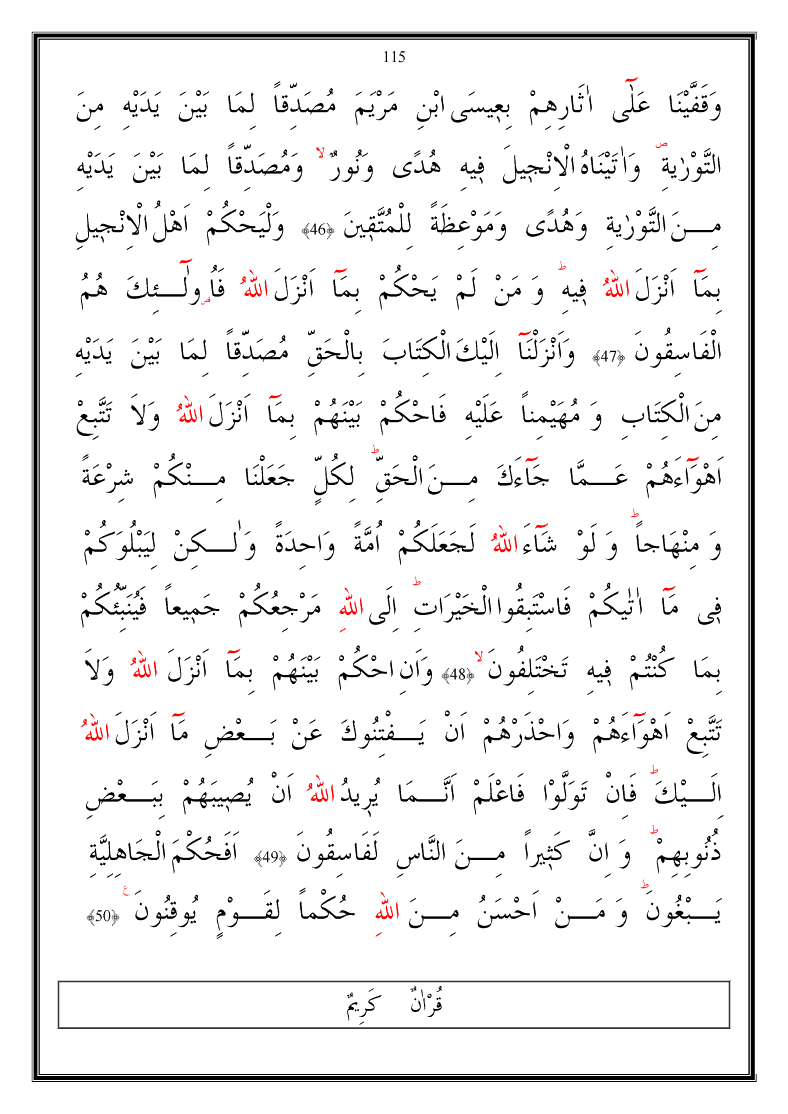 115
وَقَفَّيْنَا عَلٰٓى اٰثَارِهِمْ بِعِيسَى ابْنِ مَرْيَمَ مُصَدِّقاً لِمَا بَيْنَ يَدَيْهِ مِنَ
التَّوْرٰيةِۖ وَاٰتَيْنَاهُ الْاِنْجِيلَ فِيهِ هُدًى وَنُورٌۙ وَمُصَدِّقاً لِمَا بَيْنَ يَدَيْهِ
مِـــنَ التَّوْرٰيةِ وَهُدًى وَمَوْعِظَةً لِلْمُتَّقِينَ ﴿46﴾ وَلْيَحْكُمْ اَهْلُ الْاِنْجِيلِ
بِمَٓا اَنْزَلَ اللهُ فِيهِۜ وَ مَنْ لَمْ يَحْكُمْ بِمَٓا اَنْزَلَ اللهُ فَاُوۨلٰٓـــئِكَ هُمُ
الْفَاسِقُونَ ﴿47﴾ وَاَنْزَلْنَٓا اِلَيْكَ الْكِتَابَ بِالْحَقِّ مُصَدِّقاً لِمَا بَيْنَ يَدَيْهِ
مِنَ الْكِتَابِ وَ مُهَيْمِناً عَلَيْهِ فَاحْكُمْ بَيْنَهُمْ بِمَٓا اَنْزَلَ اللهُ وَلاَ تَتَّبِعْ
اَهْوَٓاءَهُمْ عَـــمَّا جَٓاءَكَ مِـــنَ الْحَقِّۜ لِكُلٍّ جَعَلْنَا مِـــنْكُمْ شِرْعَةً
وَ مِنْهَاجاًۜ وَ لَوْ شَٓاءَ اللهُ لَجَعَلَكُمْ اُمَّةً وَاحِدَةً وَلٰـــكِنْ لِيَبْلُوَكُمْ
فِى مَٓا اٰتٰيكُمْ فَاسْتَبِقُوا الْخَيْرَاتِۜ اِلَى اللهِ مَرْجِعُكُمْ جَمِيعاً فَيُنَبِّئُكُمْ
بِمَا كُنْتُمْ فِيهِ تَخْتَلِفُونَۙ ﴿48﴾ وَاَنِ احْكُمْ بَيْنَهُمْ بِمَٓا اَنْزَلَ اللهُ وَلاَ
تَتَّبِعْ اَهْوَٓاءَهُمْ وَاحْذَرْهُمْ اَنْ يَـــفْتِنُوكَ عَنْ بَـــعْضِ مَٓا اَنْزَلَ اللهُ
اِلَـــيْكَۜ فَاِنْ تَوَلَّوْا فَاعْلَمْ اَنَّـــمَا يُرِيدُ اللهُ اَنْ يُصِيبَهُمْ بِبَـــعْضِ
ذُنُوبِهِمْۜ وَ اِنَّ كَثِيراً مِـــنَ النَّاسِ لَفَاسِقُونَ ﴿49﴾ اَفَحُكْمَ الْجَاهِلِيَّةِ
يَـــبْغُونَۜ وَ مَـــنْ اَحْسَنُ مِـــنَ اللهِ حُكْماً لِقَـــوْمٍ يُوقِنُونَ ع ﴿50﴾
قُرْاٰنٌ كَرِيمٌ